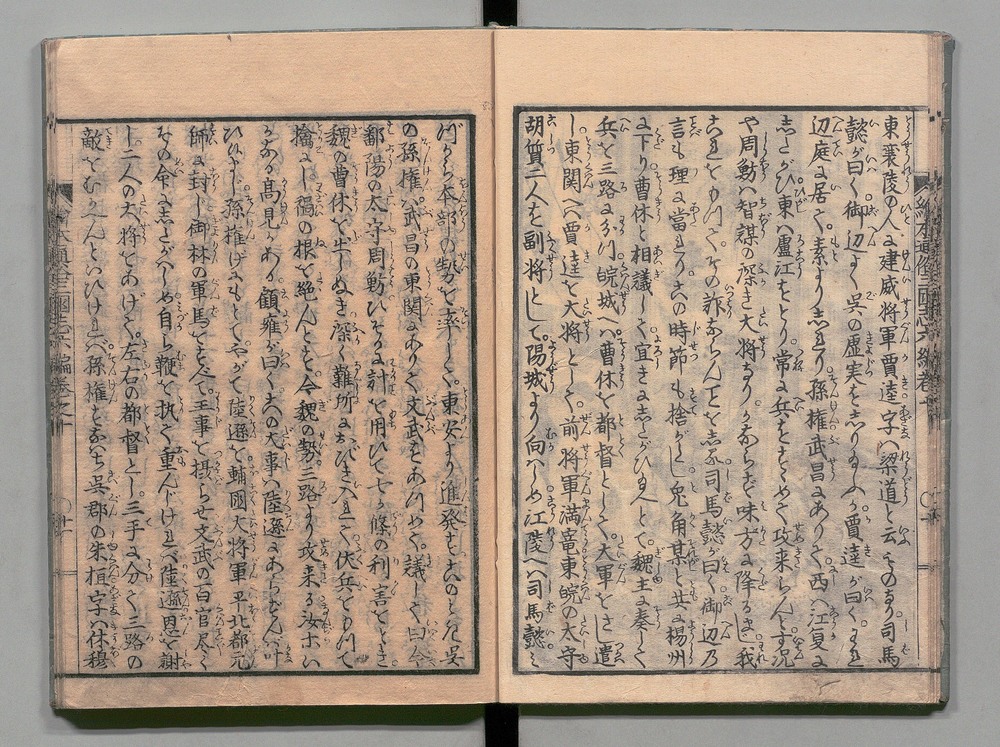 東襄陵の人に建威将軍賈逵字ハ梁道と云ものあり司馬
懿が曰く御辺よく呉の虚実をしり玉ふや賈逵が曰くそれ
辺庭に居て素よりしれり孫権武昌にありて西ハ江夏に
したがひ東ハ廬江をとり常に兵をとゞめて攻来らんとす况
や周魴ハ智謀の深き大将なりかならず味方に降るまじ我
これをもつてその詐ならんことを志る司馬懿が曰く御辺乃
言も理に當れり此の時節も捨がたし兎角某と共に揚州
に下り曹休と相議して宜きにしたがひ玉へとて魏主に奏して
兵を三路に分け皖城へハ曹休を都督として大軍をさし遣
し東関へハ賈逵を大将として前将軍満寵東皖の太守
胡質二人を副将として陽城より向ハしめ江陵へハ司馬懿ミ
づから本部の勢を率して東安より進発すこのとき呉
の孫権ハ武昌の東関にありて文武をあつめて議して曰今
鄱陽の太守周魴ひそかに計を用ひて七ヶ條の利害をとき
魏の曹休を生捕深く難所におびき入れて伏兵をもつて
擒にし禍の根を絶んとす今魏の勢三路より攻来る汝ホい
かなる高見かある顧雍が曰く此の大事ハ陸遜にあらずんバ叶
ひがたし孫権げにもとてやがて陸遜を輔國大将軍平北都元
師に封し御林の軍馬をすべて王事を摂らせ文武の百官尽く
その令にしたがハしめ自ら鞭を執て重んじけれバ陸遜恩を謝
し二人の大将をあげて左右の都督とし三手に分て三路の
敵をむかへんといひけれバ孫権すなハち呉郡の朱桓字ハ休穆